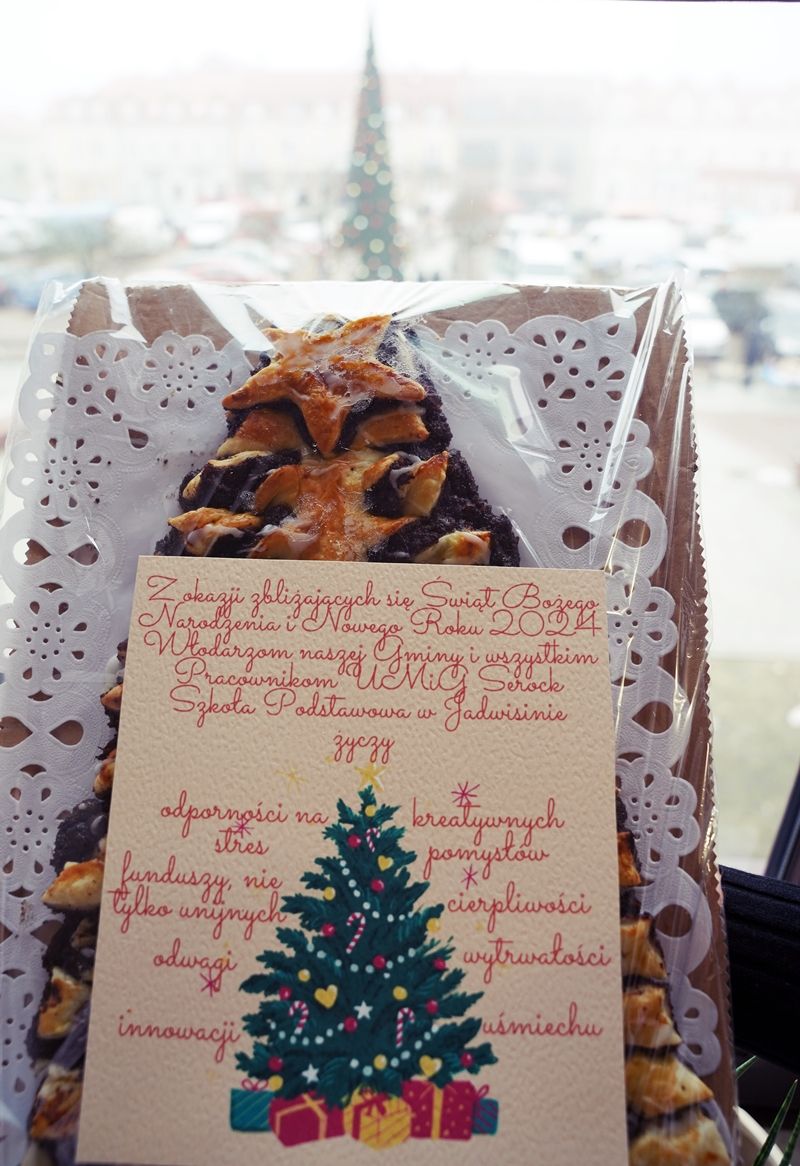 Z okazji zbliżających się Świąt Bożego
Narodzenia i Nowego Roku 2024
Włodarzom naszej Gminy i wszystkim
Pracownikom UMiG Serock
Szkoła Podstawowa w Jadwisinie
życzy
odporności na
stres
funduszy, nie
tylko unijnych
odwagi
innowacji
kreatywnych
pomysłów
cierpliwości
wytrwałości
uśmiechu